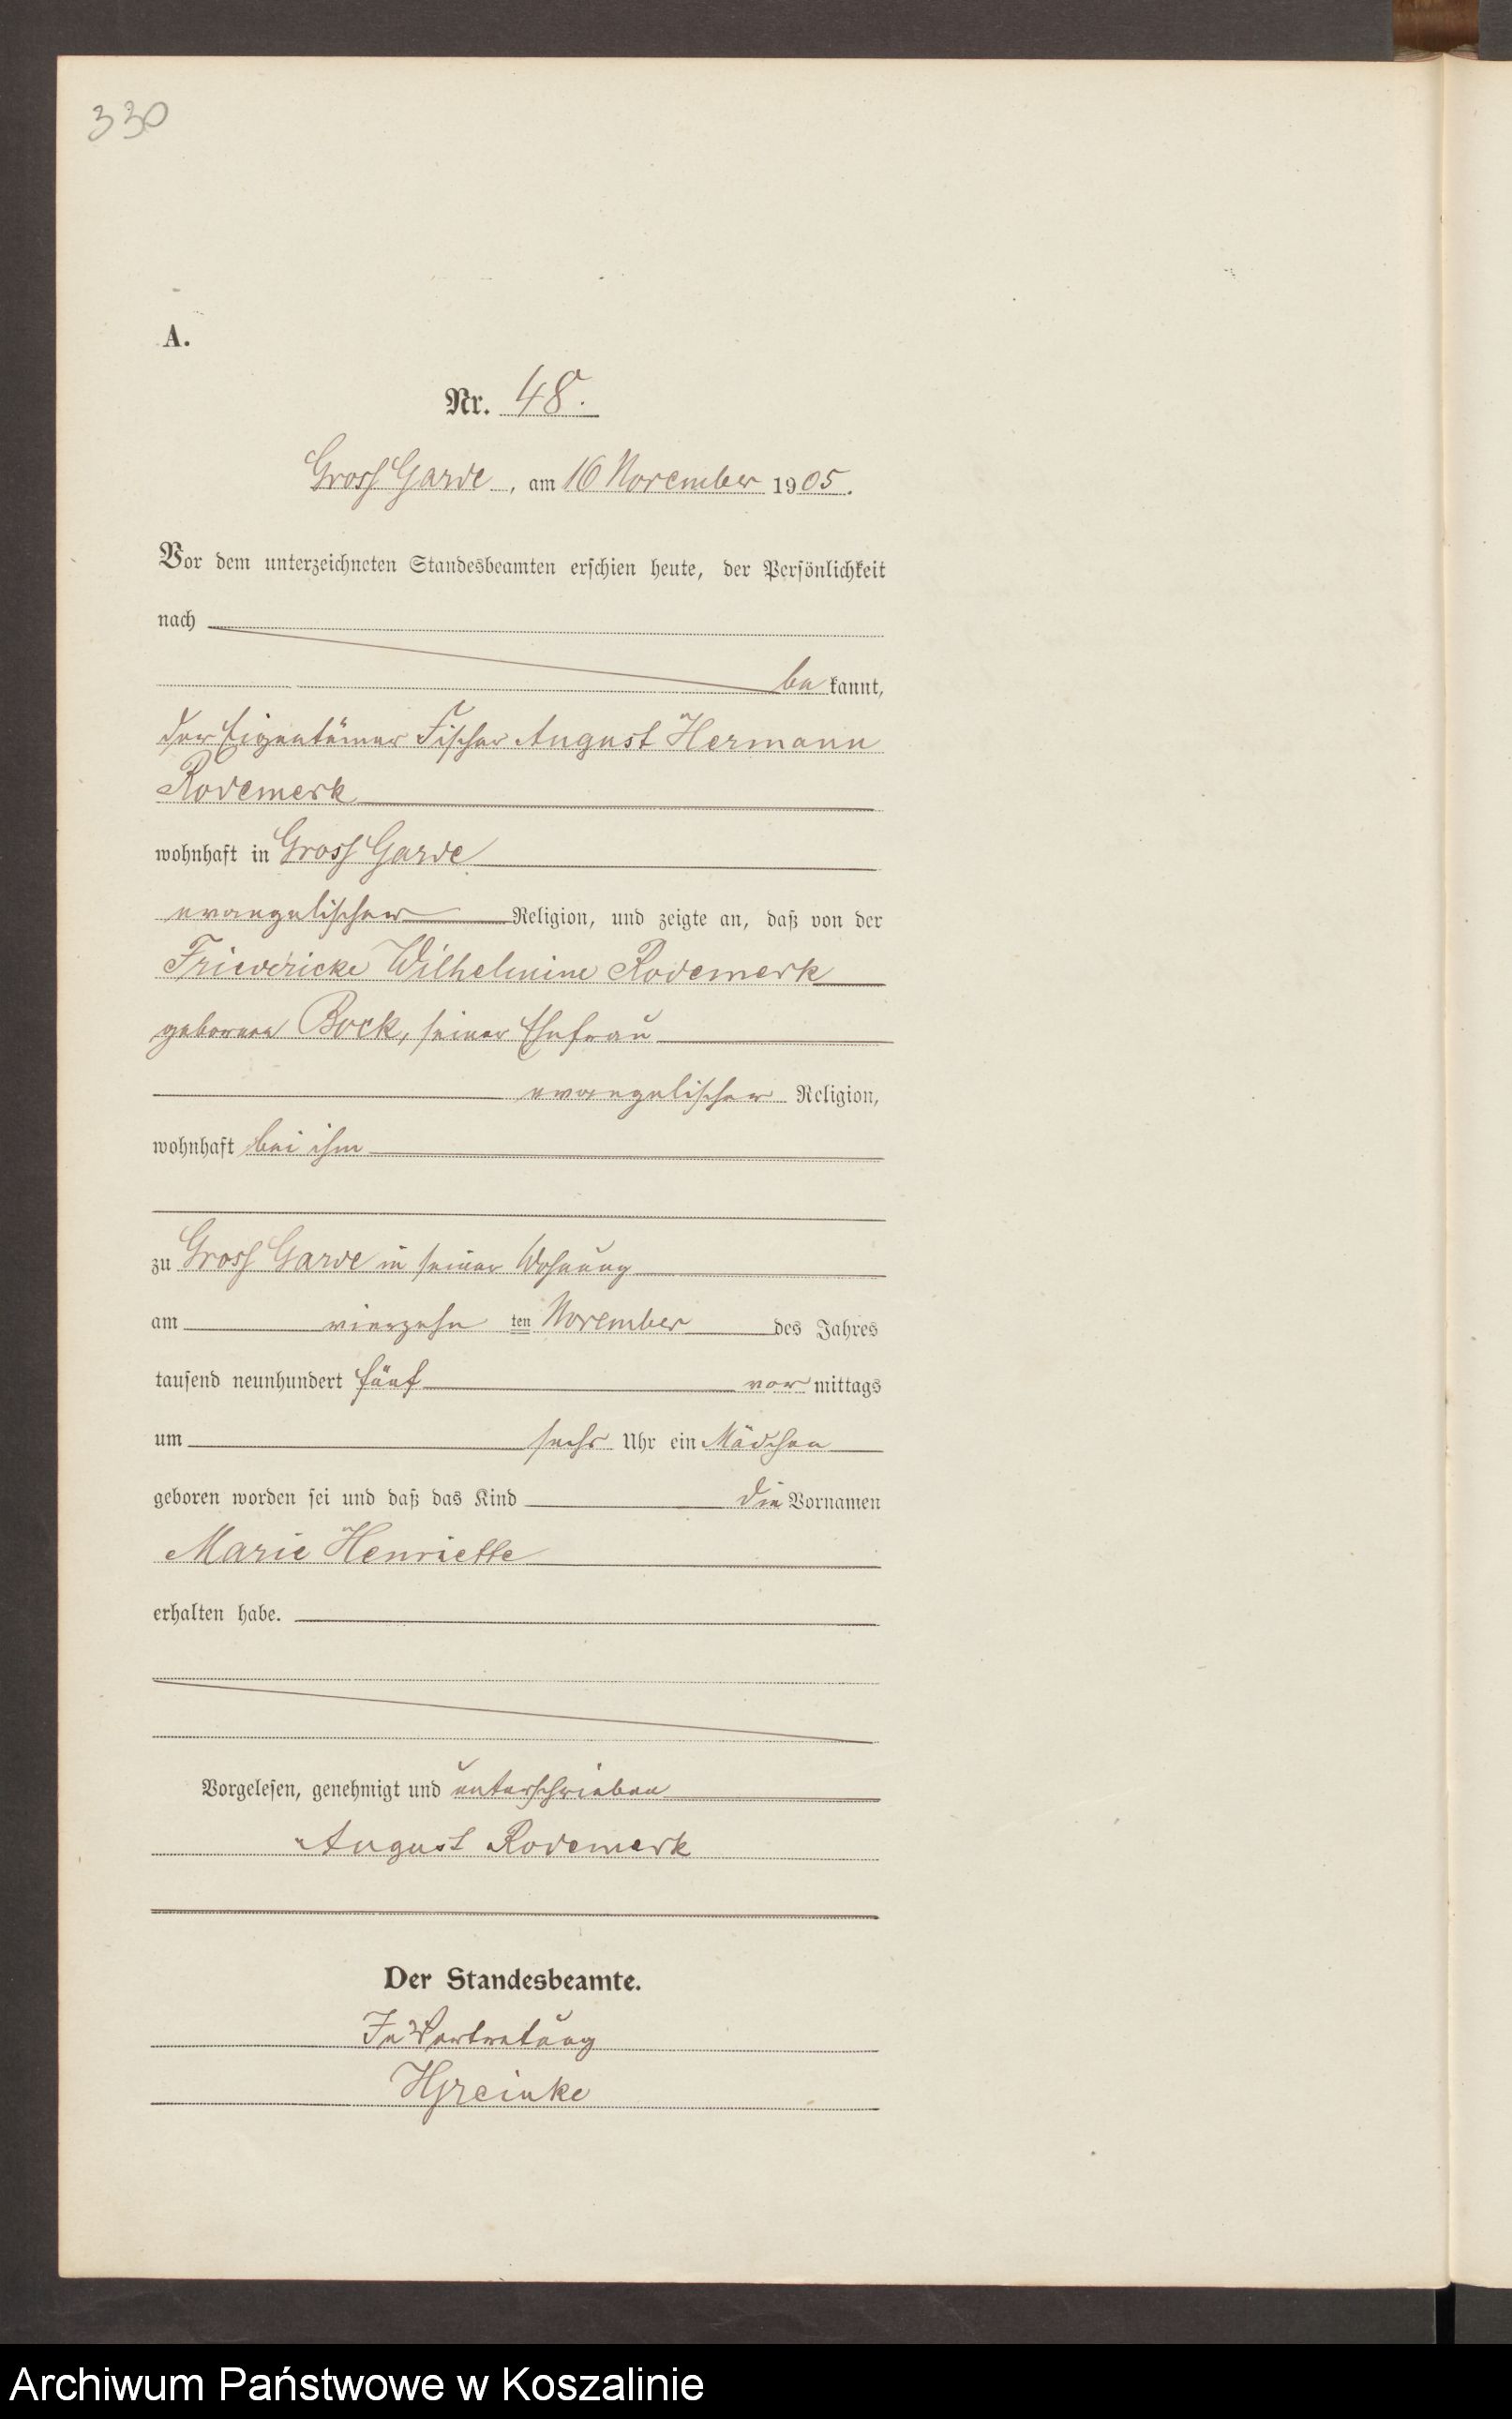 330
A.
Nr. 48.
Gross Garde, am 16 November 1905.
Vor dem unterzeichneten Standesbeamten erschien heute, der Persönlichkeit
nach
be kannt,
der Eigentümer Fischer August Hermann
Rodemerk
wohnhaft in Gross Garde
evangelischer Religion, und zeigte an, daß von der
Friedericke Wilhelmine Rodemerk
geborene Bock, seiner Ehefrau
evangelischer Religion,
wohnhaft bei ihm
zu Gross Garde in seiner Wohnung
am vierzehn ten November des Jahres
tausend neunhundert fünf vor mittags
um sechs Uhr ein Mädchen
geboren worden sei und daß das Kind die Vornamen
Marie Henriette
erhalten habe.
Vorgelesen, genehmigt und unterschrieben
August Rodemerk
Der Standesbeamte.
In Vertretung
Archiwum Państwowe w Koszalinie